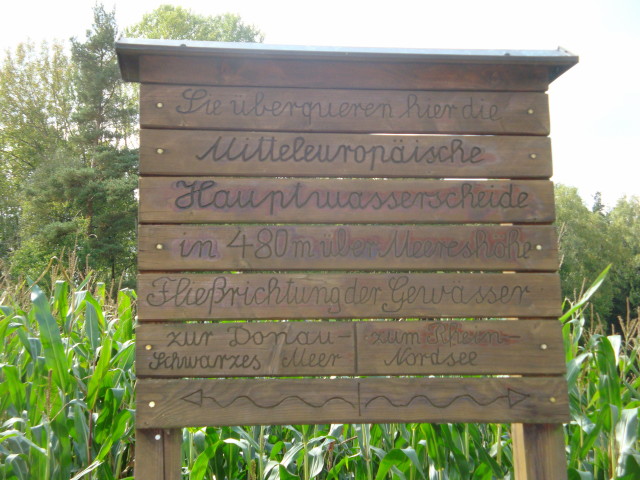 Sie überqueren hier die
Mitteleuropäische
Hauptwasserscheide
in 480m über Meereshöhe
Fließrichtung der Gewässer
zur Donau-
Schwarzes Meer
zum Rhein-
Nordsee